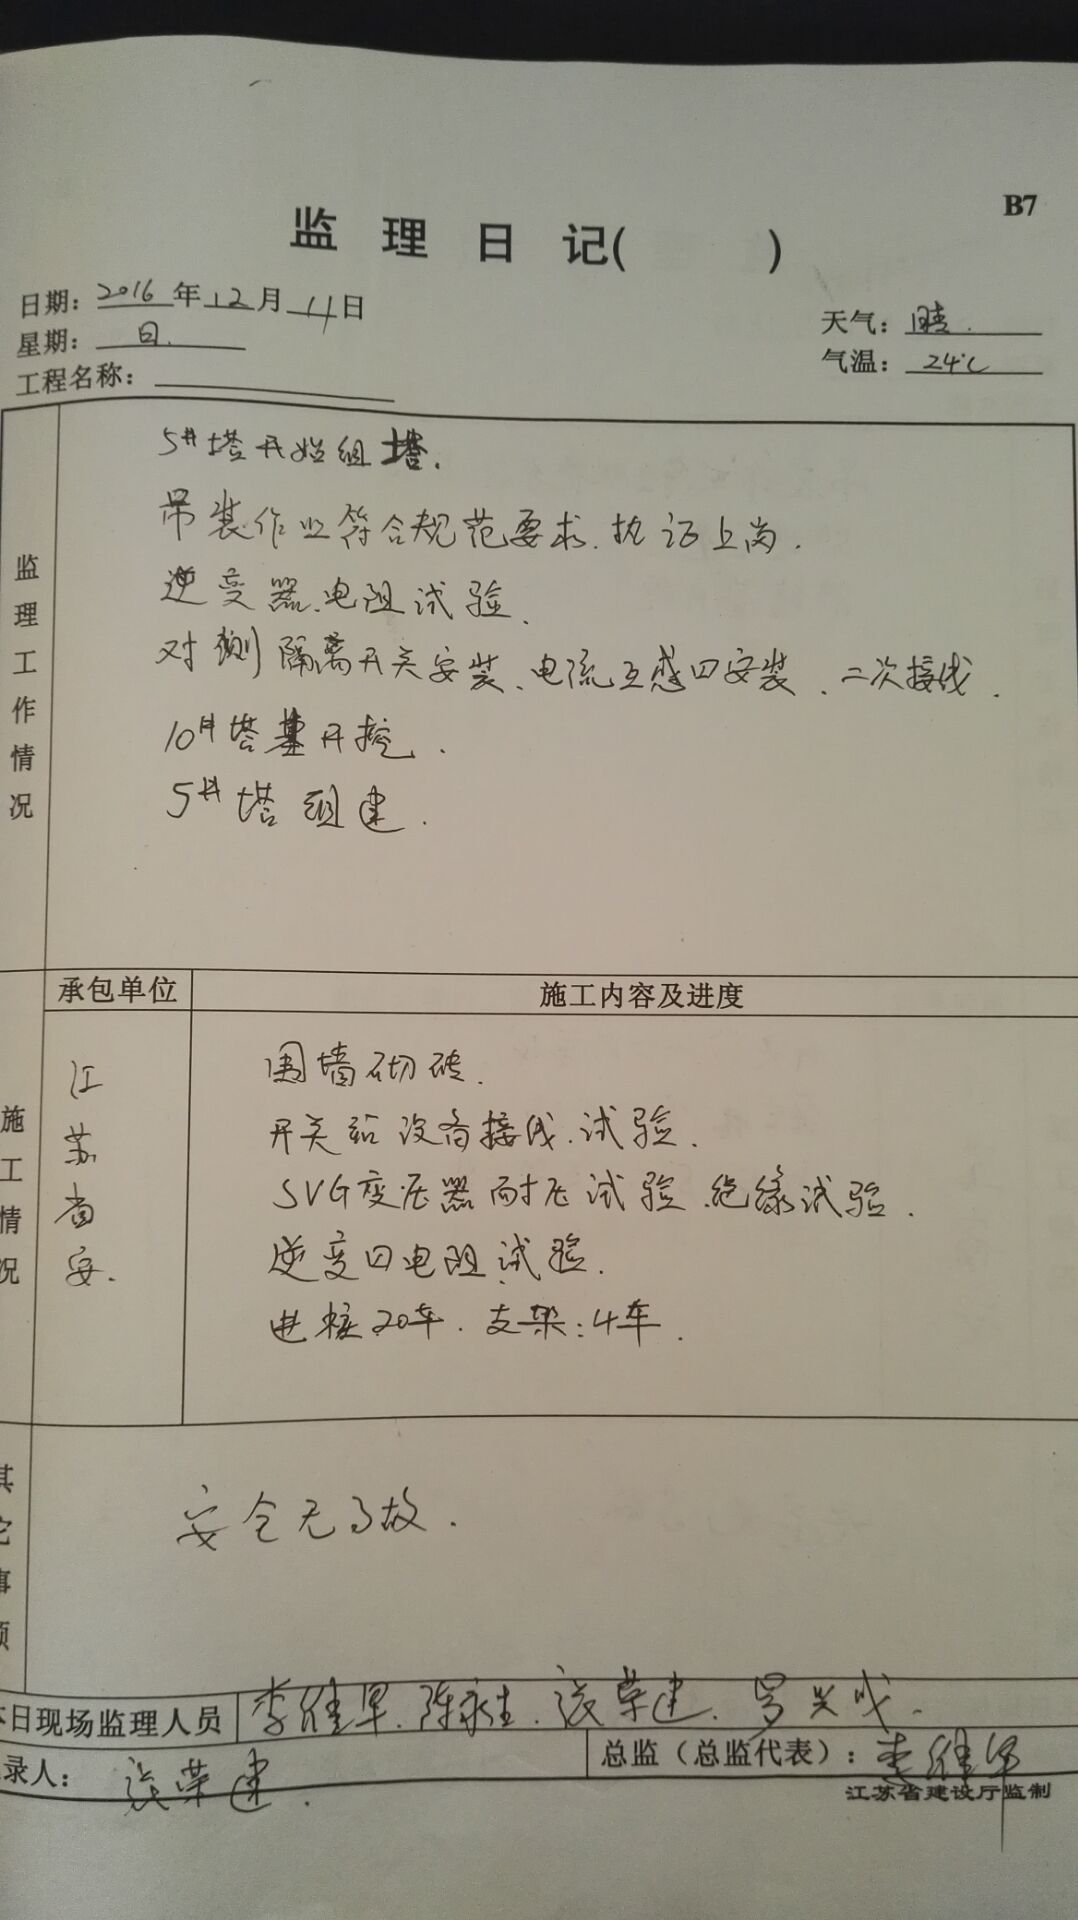 B7
监 理 日 记( )
日期: 2016 年 12 月 11 日
天气: 晴.
星期: 日.
气温: 24℃
工程名称:
监理工作情况
5#塔开始组塔.
吊装作业符合规范要求.执证上岗.
逆变器.电阻试验.
对侧隔离开关安装、电流互感四安装、二次接线.
10#塔基开挖.
5#塔组建.
承包单位
施工内容及进度
施工情况
江苏省安.
围墙砌砖.
开关站设备接线.试验.
SVG变压器耐压试验.绝缘试验.
逆变四电阻试验.
进 20车.支架:4车.
其它事项
安全无事故.
本日现场监理人员
李继军.陈永生.张荣建.罗兴成.
录人: 张荣建.
总监（总监代表）: 李继军
江苏省建设厅监制